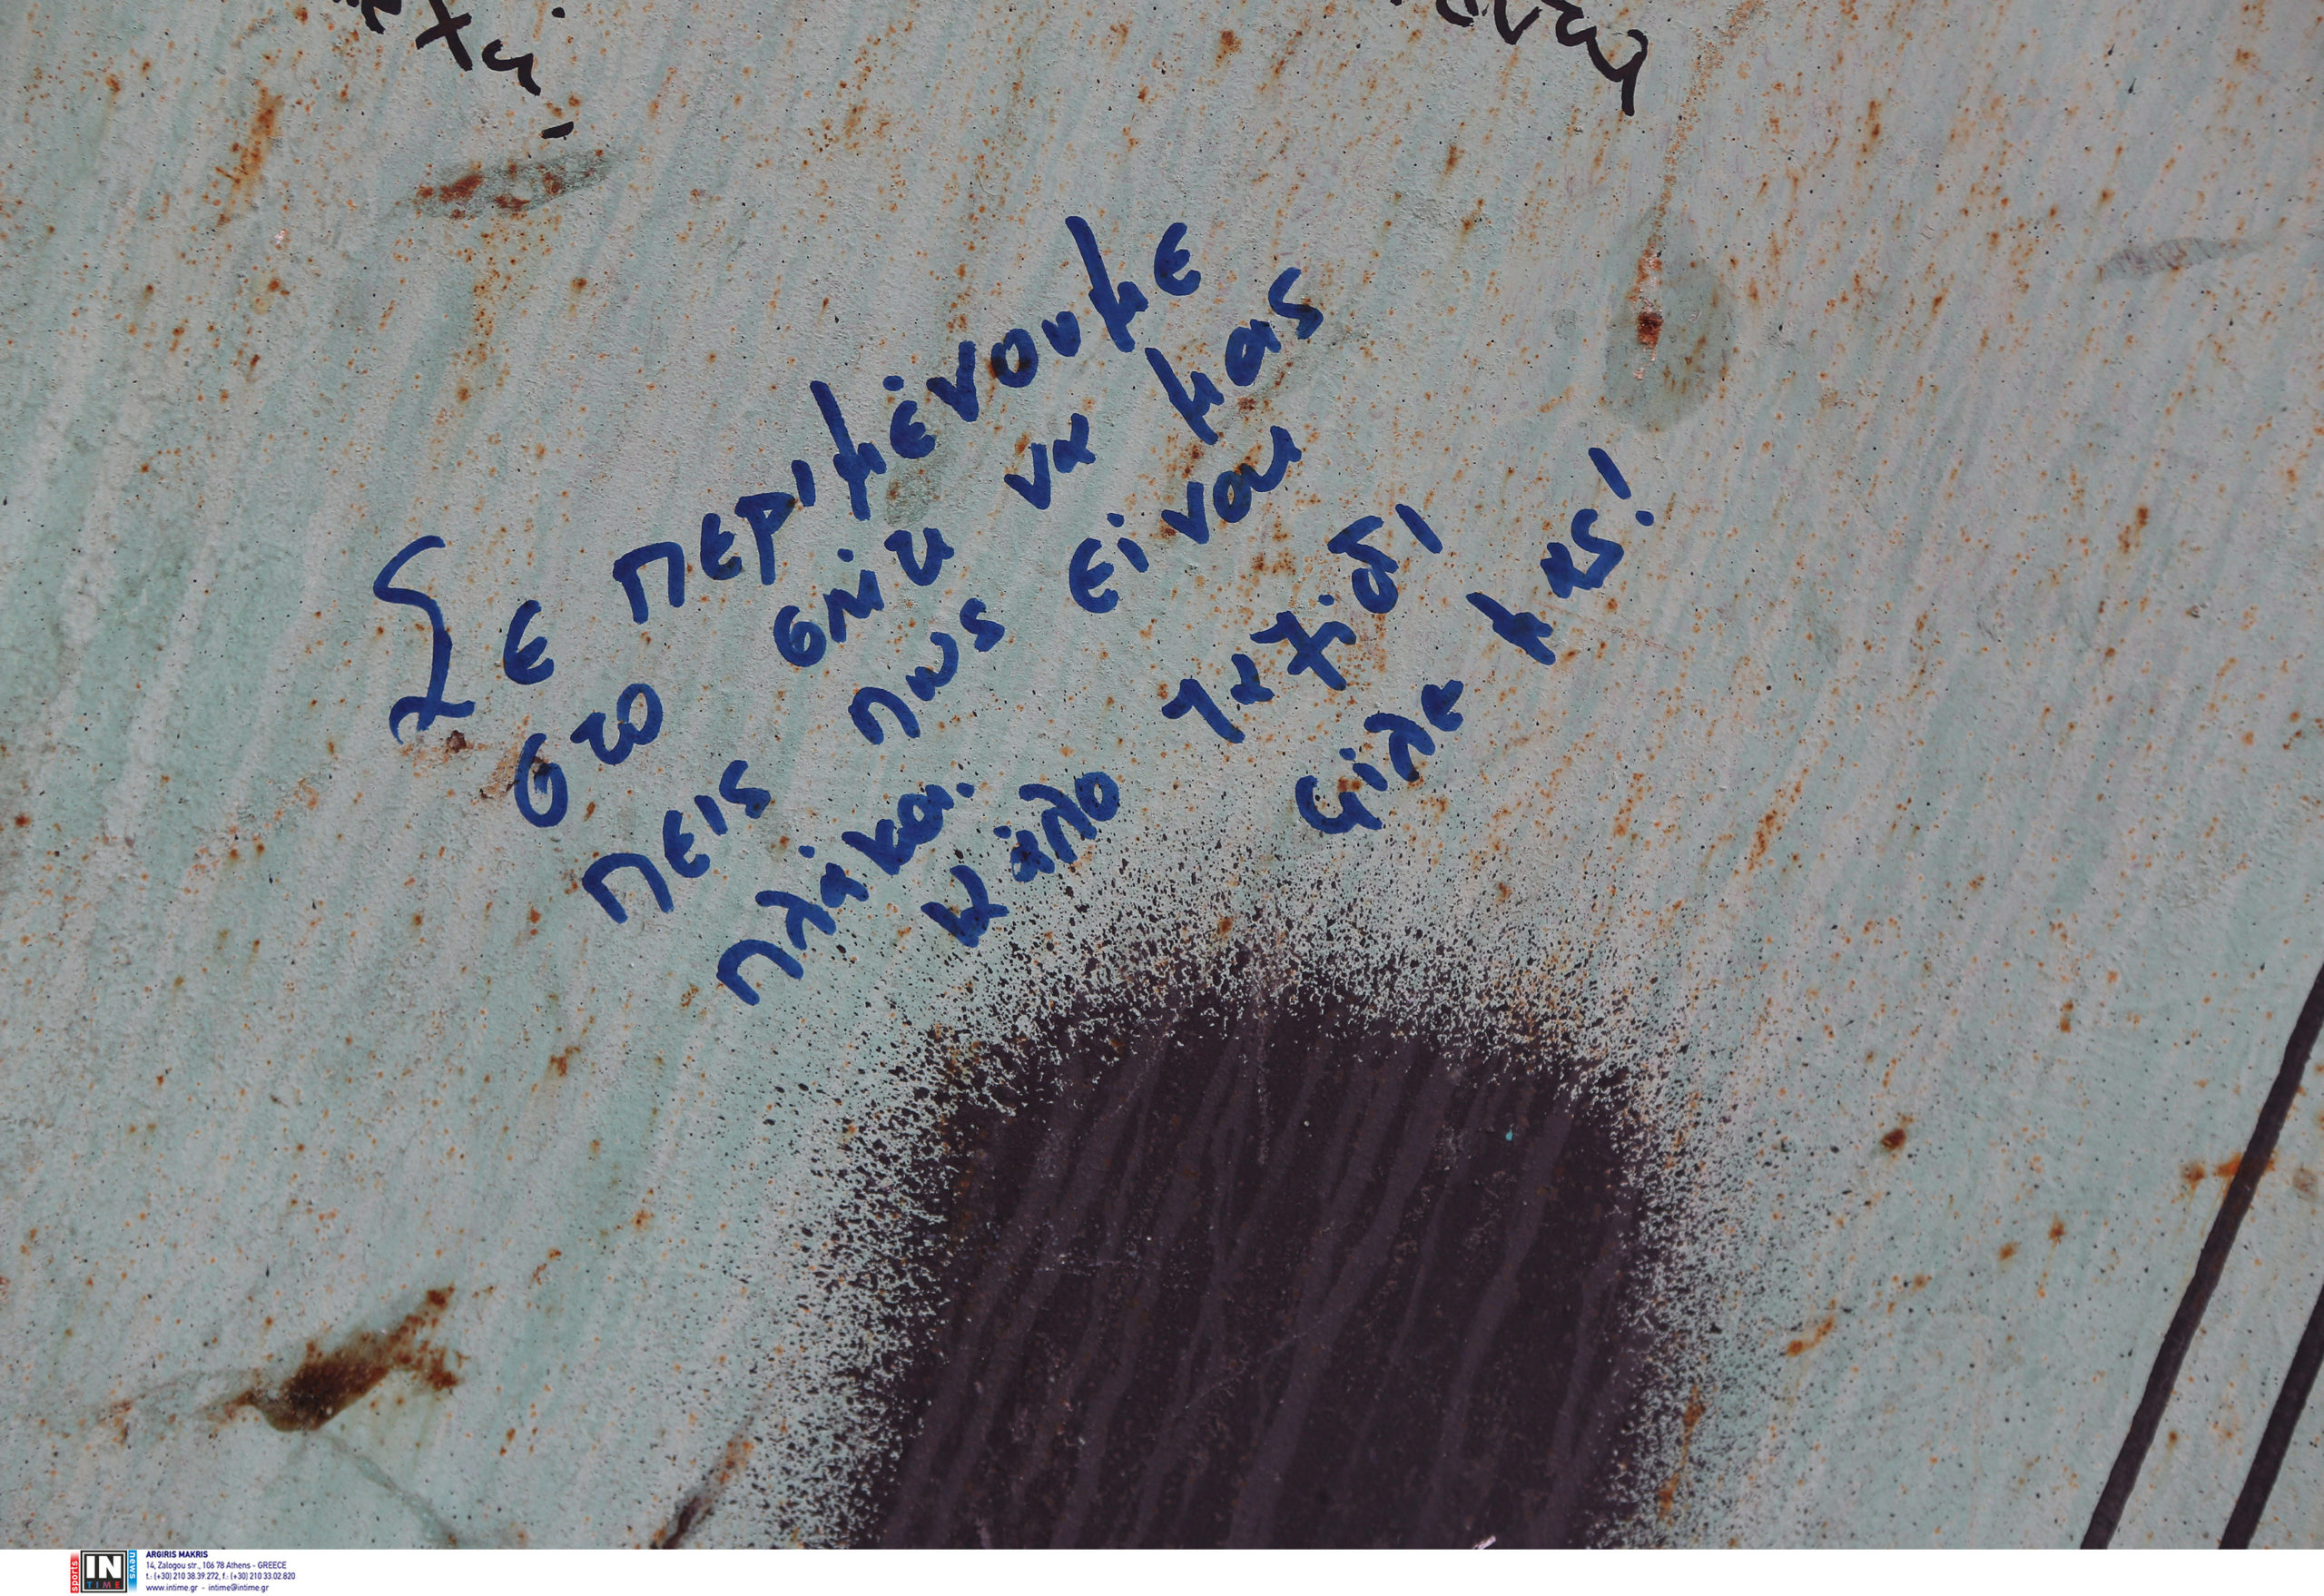 Σε περιμένουμε
στο σπίτι να μας
πεις πως είναι
πλάκα.
Κάλο ταξίδι
φίλε μας!
sports IN TIME news
ARGIRIS MAKRIS
14, Zalogou str., 106 78 Athens - GREECE
t.: (+30) 210 38.39.272, f.: (+30) 210 33.02.820
www.intime.gr - intime@intime.gr